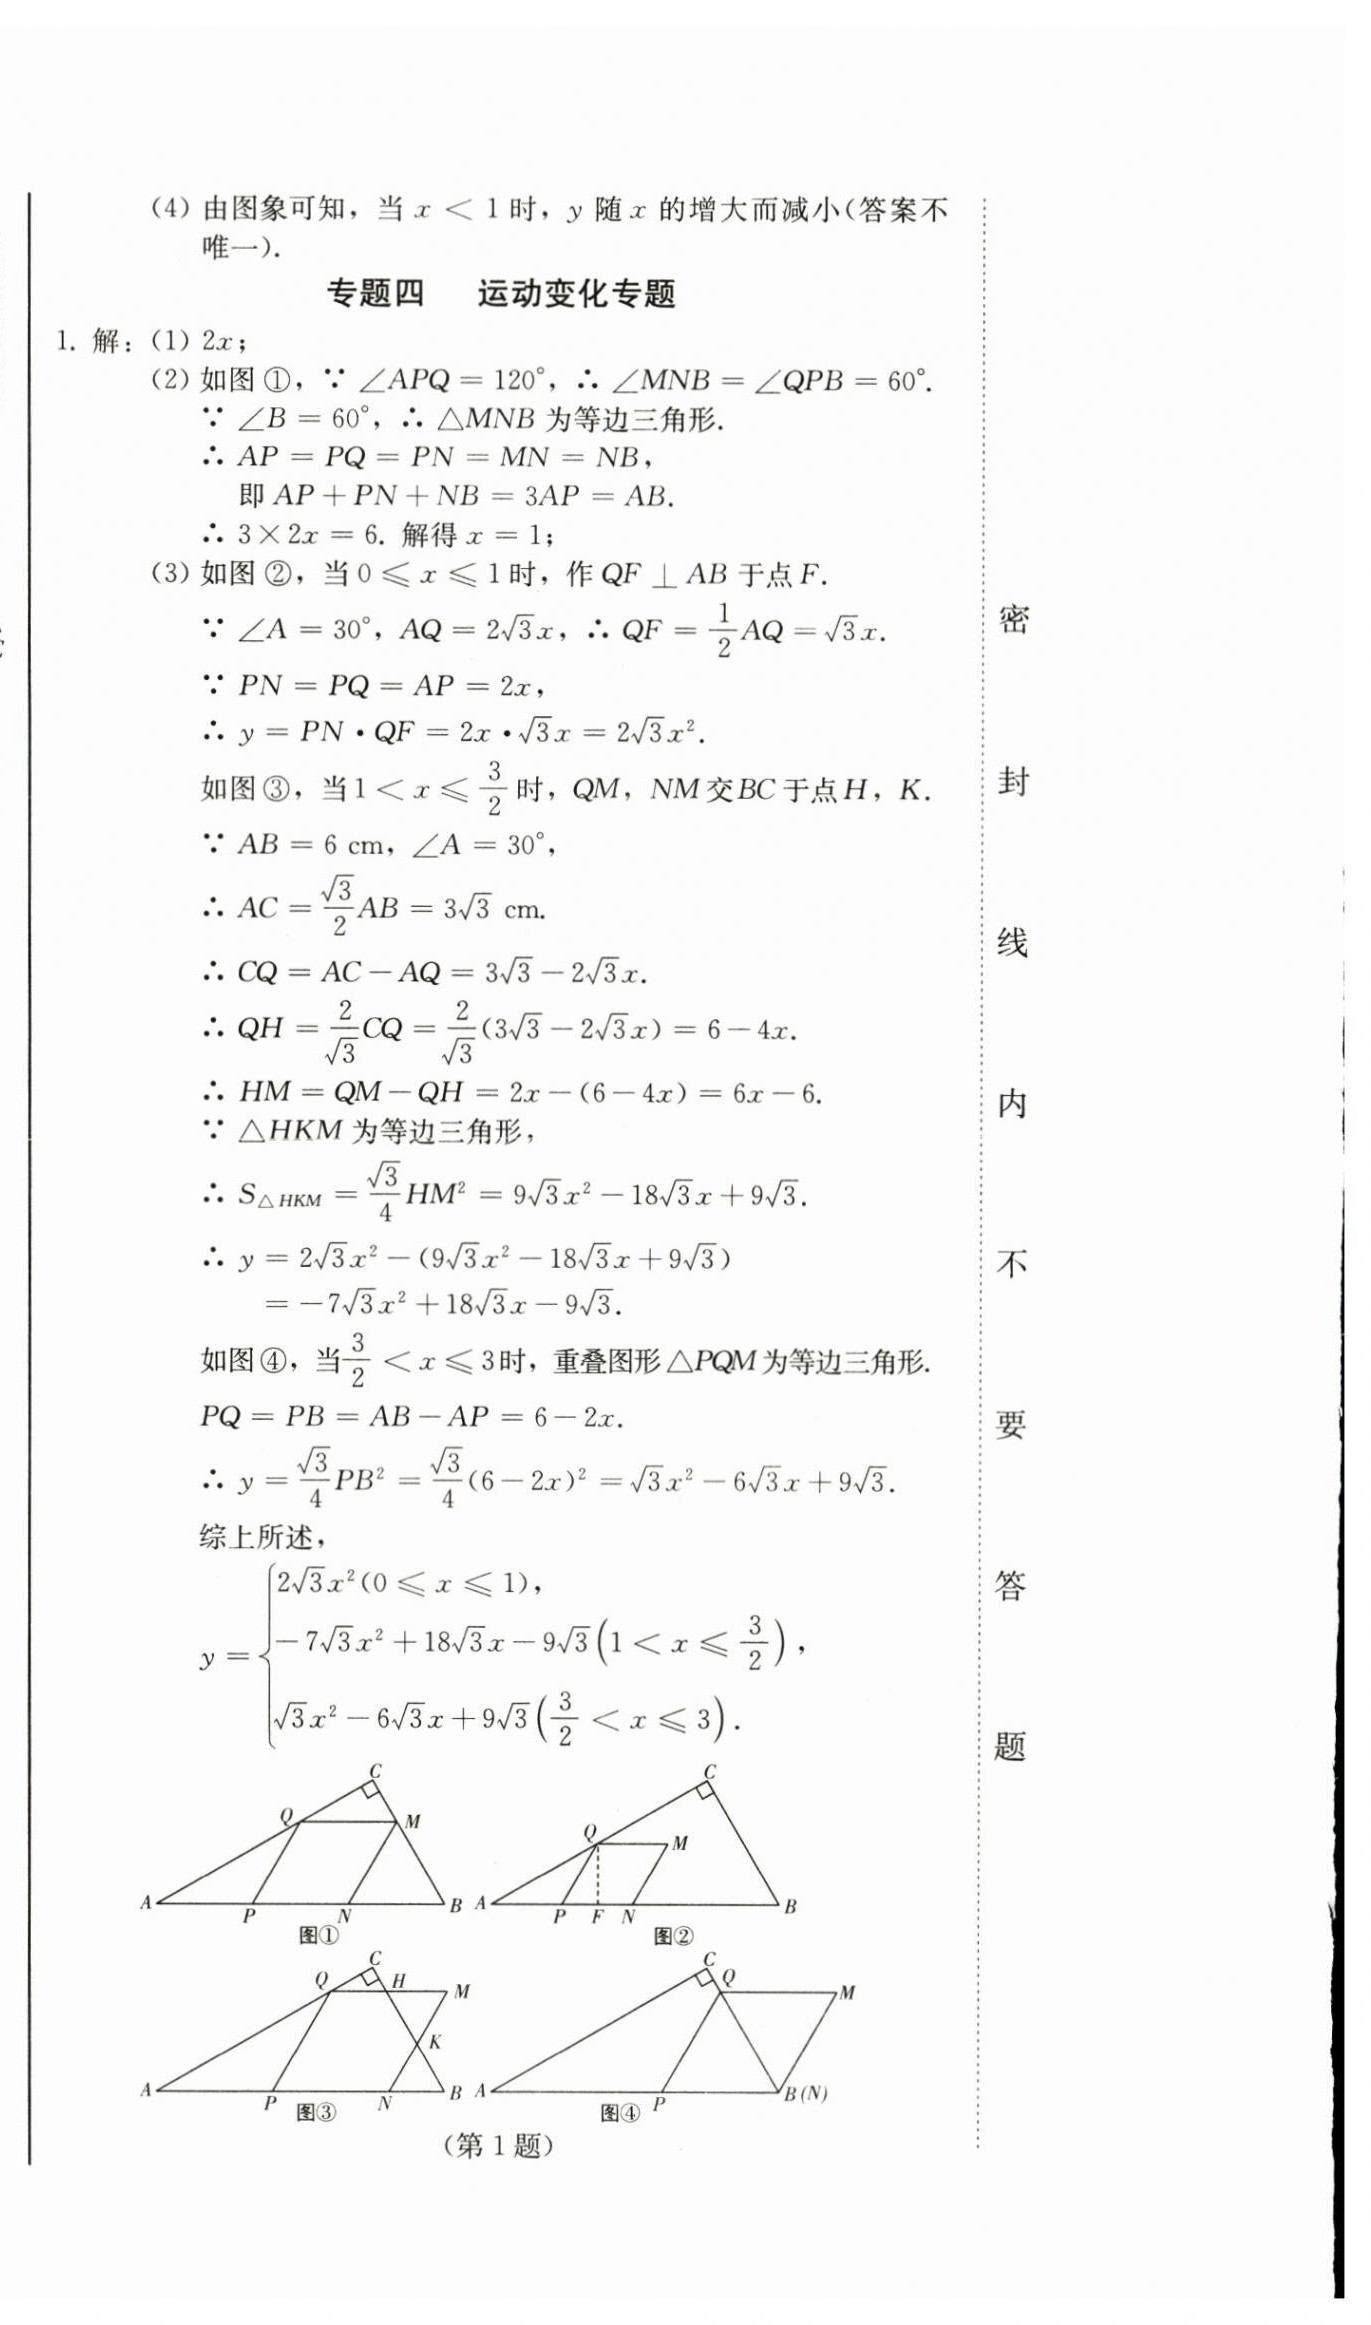 (4) 由图象可知，当 x < 1 时，y 随 x 的增大而减小(答案不
唯一).
专题四 运动变化专题
1. 解：(1) 2x；
(2) 如图①，∵ ∠APQ = 120°，∴ ∠MNB = ∠QPB = 60°.
∵ ∠B = 60°，∴ △MNB 为等边三角形.
∴ AP = PQ = PN = MN = NB，
即 AP + PN + NB = 3AP = AB.
∴ 3×2x = 6. 解得 x = 1；
(3) 如图②，当 0 ⩽ x ⩽ 1 时，作 QF ⊥ AB 于点 F.
∵ ∠A = 30°，AQ = 2√3x，∴ QF = 1/2 AQ = √3x.
∵ PN = PQ = AP = 2x，
∴ y = PN • QF = 2x • √3x = 2√3x².
如图③，当 1 < x ⩽ 3/2 时，QM，NM 交 BC 于点 H，K.
∵ AB = 6 cm，∠A = 30°，
∴ AC = √3/2 AB = 3√3 cm.
∴ CQ = AC − AQ = 3√3 − 2√3x.
∴ QH = 2/√3 CQ = 2/√3 (3√3 − 2√3x) = 6 − 4x.
∴ HM = QM − QH = 2x − (6 − 4x) = 6x − 6.
∵ △HKM 为等边三角形，
∴ S△HKM = √3/4 HM² = 9√3x² − 18√3x + 9√3.
∴ y = 2√3x² − (9√3x² − 18√3x + 9√3)
= −7√3x² + 18√3x − 9√3.
如图④，当 3/2 < x ⩽ 3 时，重叠图形 △PQM 为等边三角形.
PQ = PB = AB − AP = 6 − 2x.
∴ y = √3/4 PB² = √3/4 (6 − 2x)² = √3x² − 6√3x + 9√3.
综上所述，
y = { 2√3x² (0 ⩽ x ⩽ 1)，
−7√3x² + 18√3x − 9√3 (1 < x ⩽ 3/2)，
√3x² − 6√3x + 9√3 (3/2 < x ⩽ 3).
C
Q M
A P N B
图①
C
Q M
A P F N B
图②
C
Q H M
K
A P N B
图③
C
Q M
A P B(N)
图④
(第 1 题)
密
封
线
内
不
要
答
题